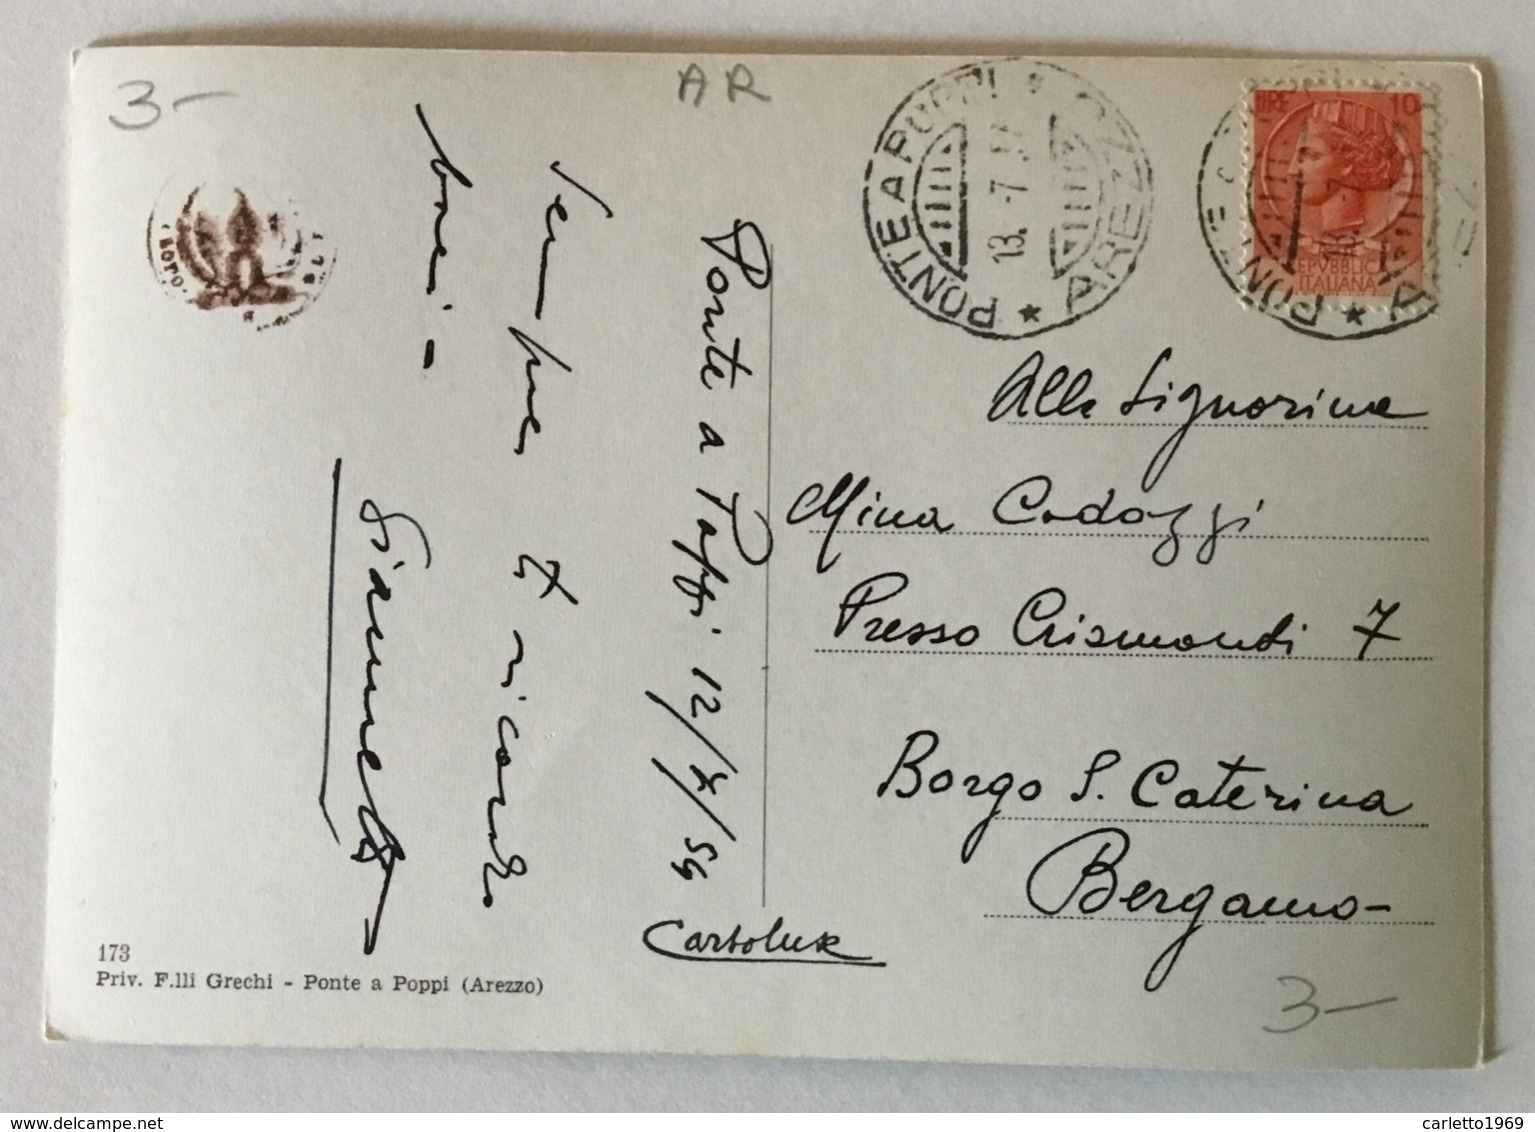 3-
AR
PONTE A POPPI * AREZZO *
13.-7.5
LIRE 10
REPVBBLICA
ITALIANA
Ponte a Poppi 12/7/54
Sempre ti ricordo
baci -
Giannetto
Alla Signorina
Mina Codazzi
Presso Crismondi 7
Borgo S. Caterina
Bergamo-
Cartolux
173
Priv. F.lli Grechi - Ponte a Poppi (Arezzo)
3-
www.delcampe.net
carletto1969